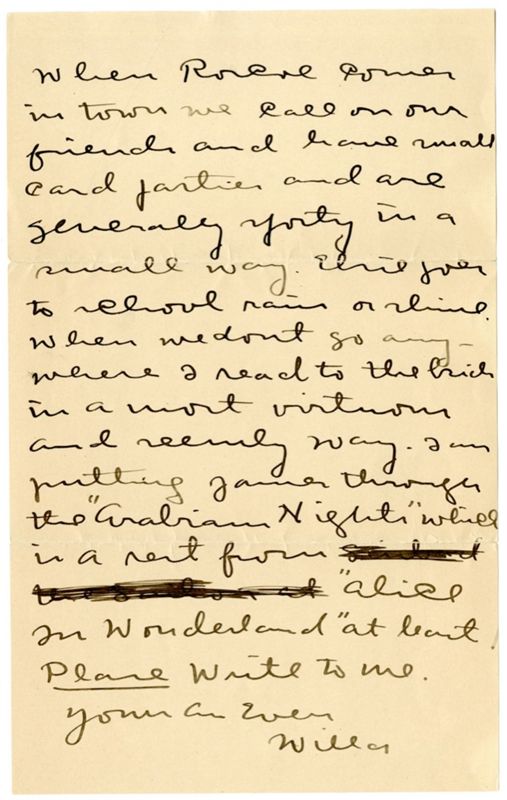 When Roscoe comes
in town we call on our
friends and have small
card parties and are
generally sporty in a
small way. Elsie goes
to school rain or shine.
When we dont go any-
where I read to the brick
in a most virtuous
and seemly way. I am
putting James through
the "Arabian Nights" which
is a rest from
"Alice
In Wonderland" at least!
Please Write to me.
Yours as Ever
Willa